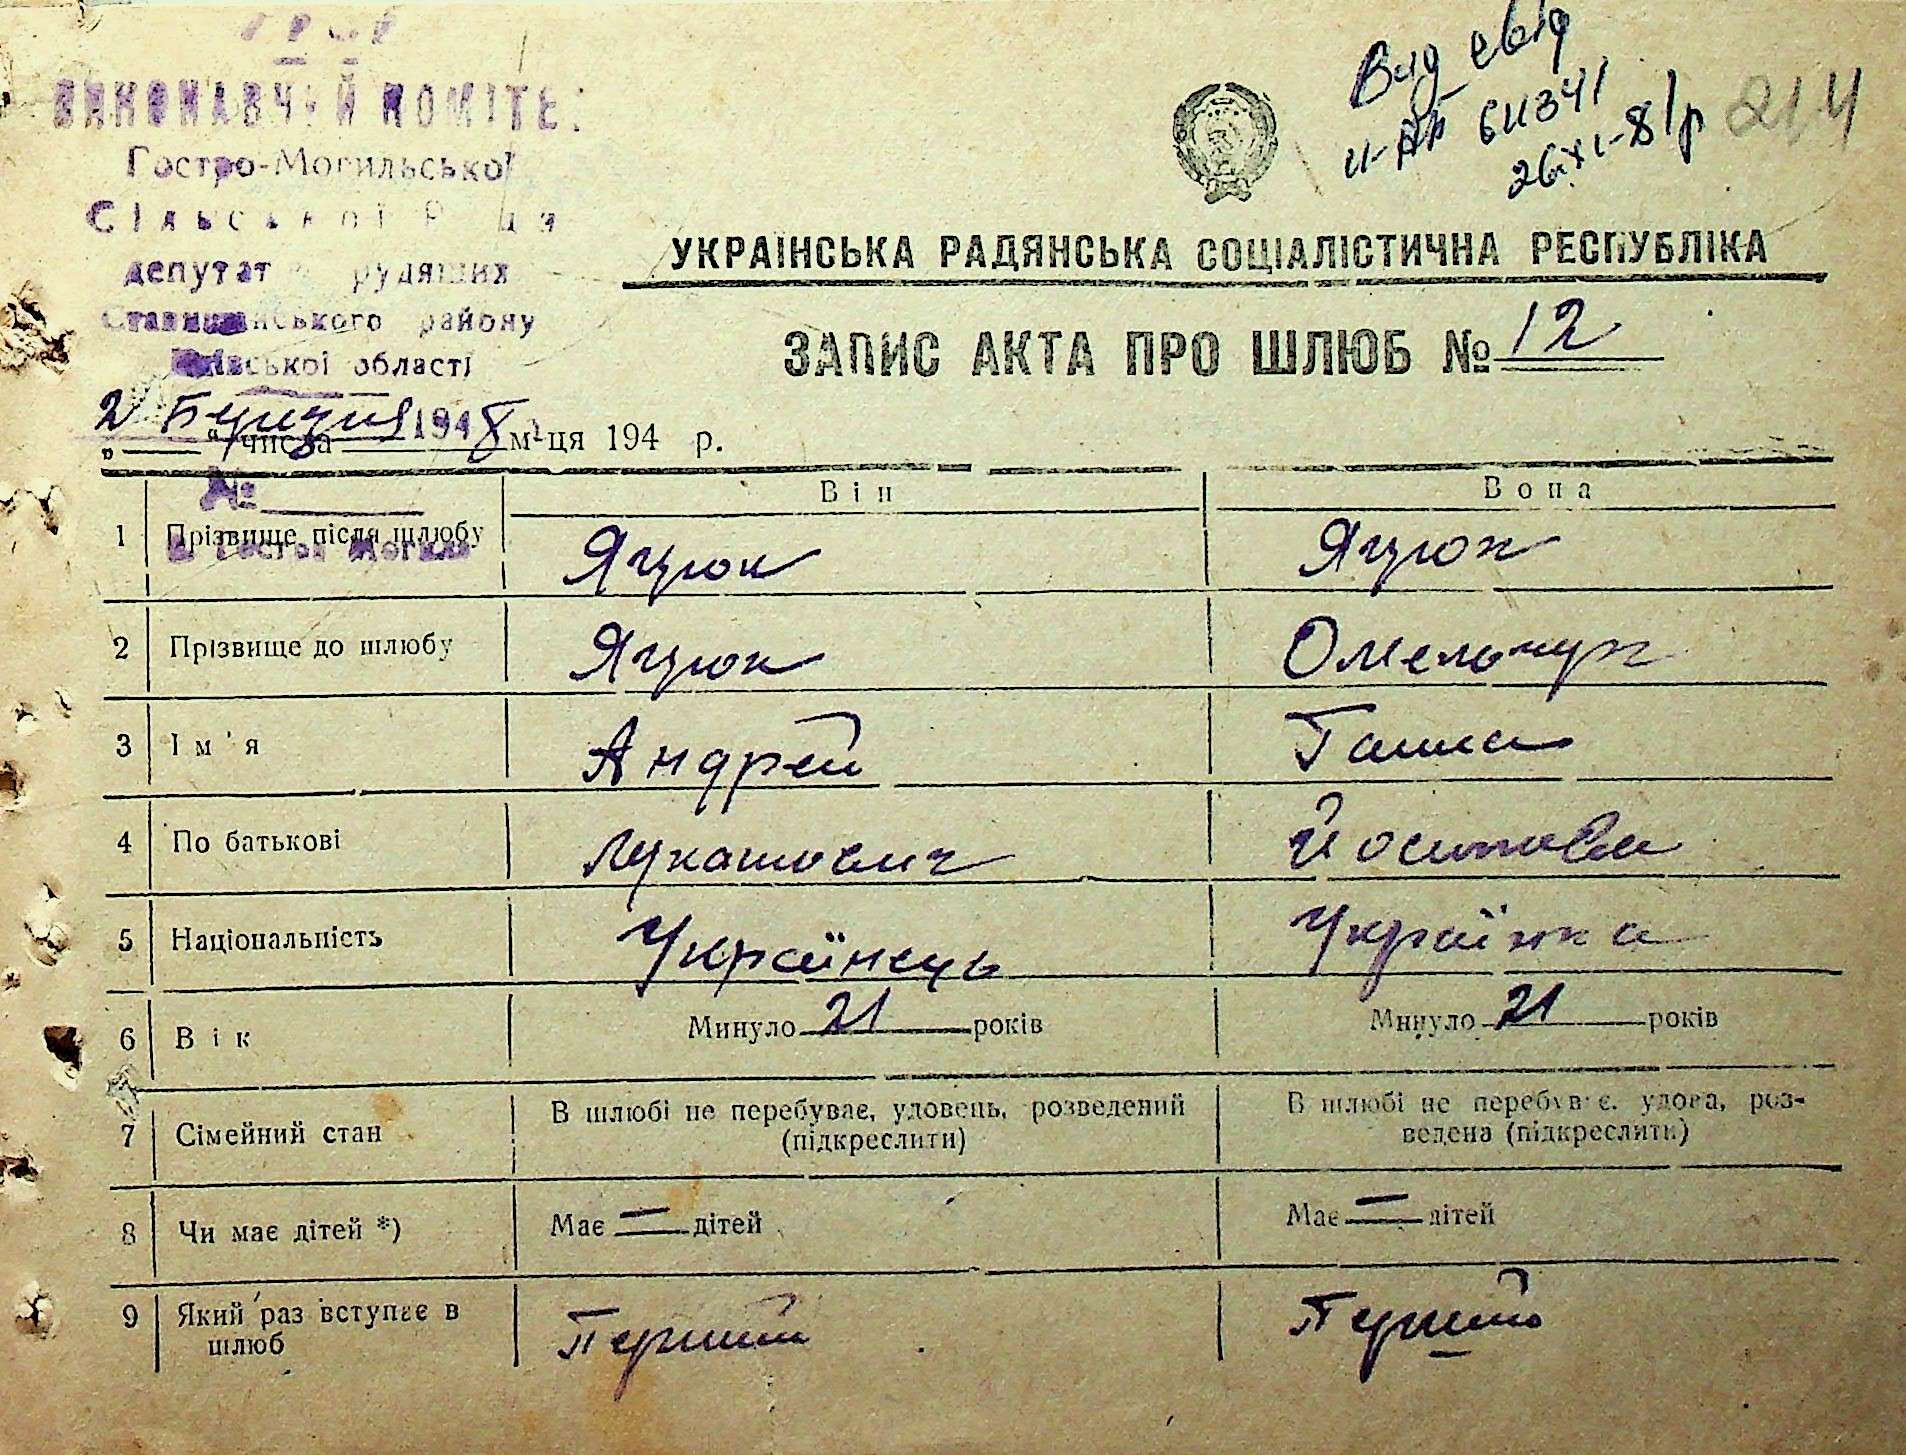 УРСР
ВИКОНАВЧИЙ КОМІТЕТ
Гостро-Могильської
Сільської Ради
депутатів трудящих
Ставищанського району
Київської області
2 Березня 1948
№
с. Гостра Могила
Вид свід
II-АП 611341
26 XI-81р
214
УКРАЇНСЬКА РАДЯНСЬКА СОЦІАЛІСТИЧНА РЕСПУБЛІКА
ЗАПИС АКТА ПРО ШЛЮБ № 12
„ “ числа м-ця 194 р.
Він Вона
1 Прізвище після шлюбу Яцюк Яцюк
2 Прізвище до шлюбу Яцюк Омельчук
3 Ім'я Андрей Ганна
4 По батькові Лукашович Йосиповна
5 Національність Українець Українка
6 Вік Минуло 21 років Минуло 21 років
7 Сімейний стан В шлюбі не перебуває, удовець, розведений (підкреслити) В шлюбі не перебуває, удова, розведена (підкреслити)
8 Чи має дітей *) Має — дітей Має — дітей
9 Який раз вступає в шлюб Перший Перший